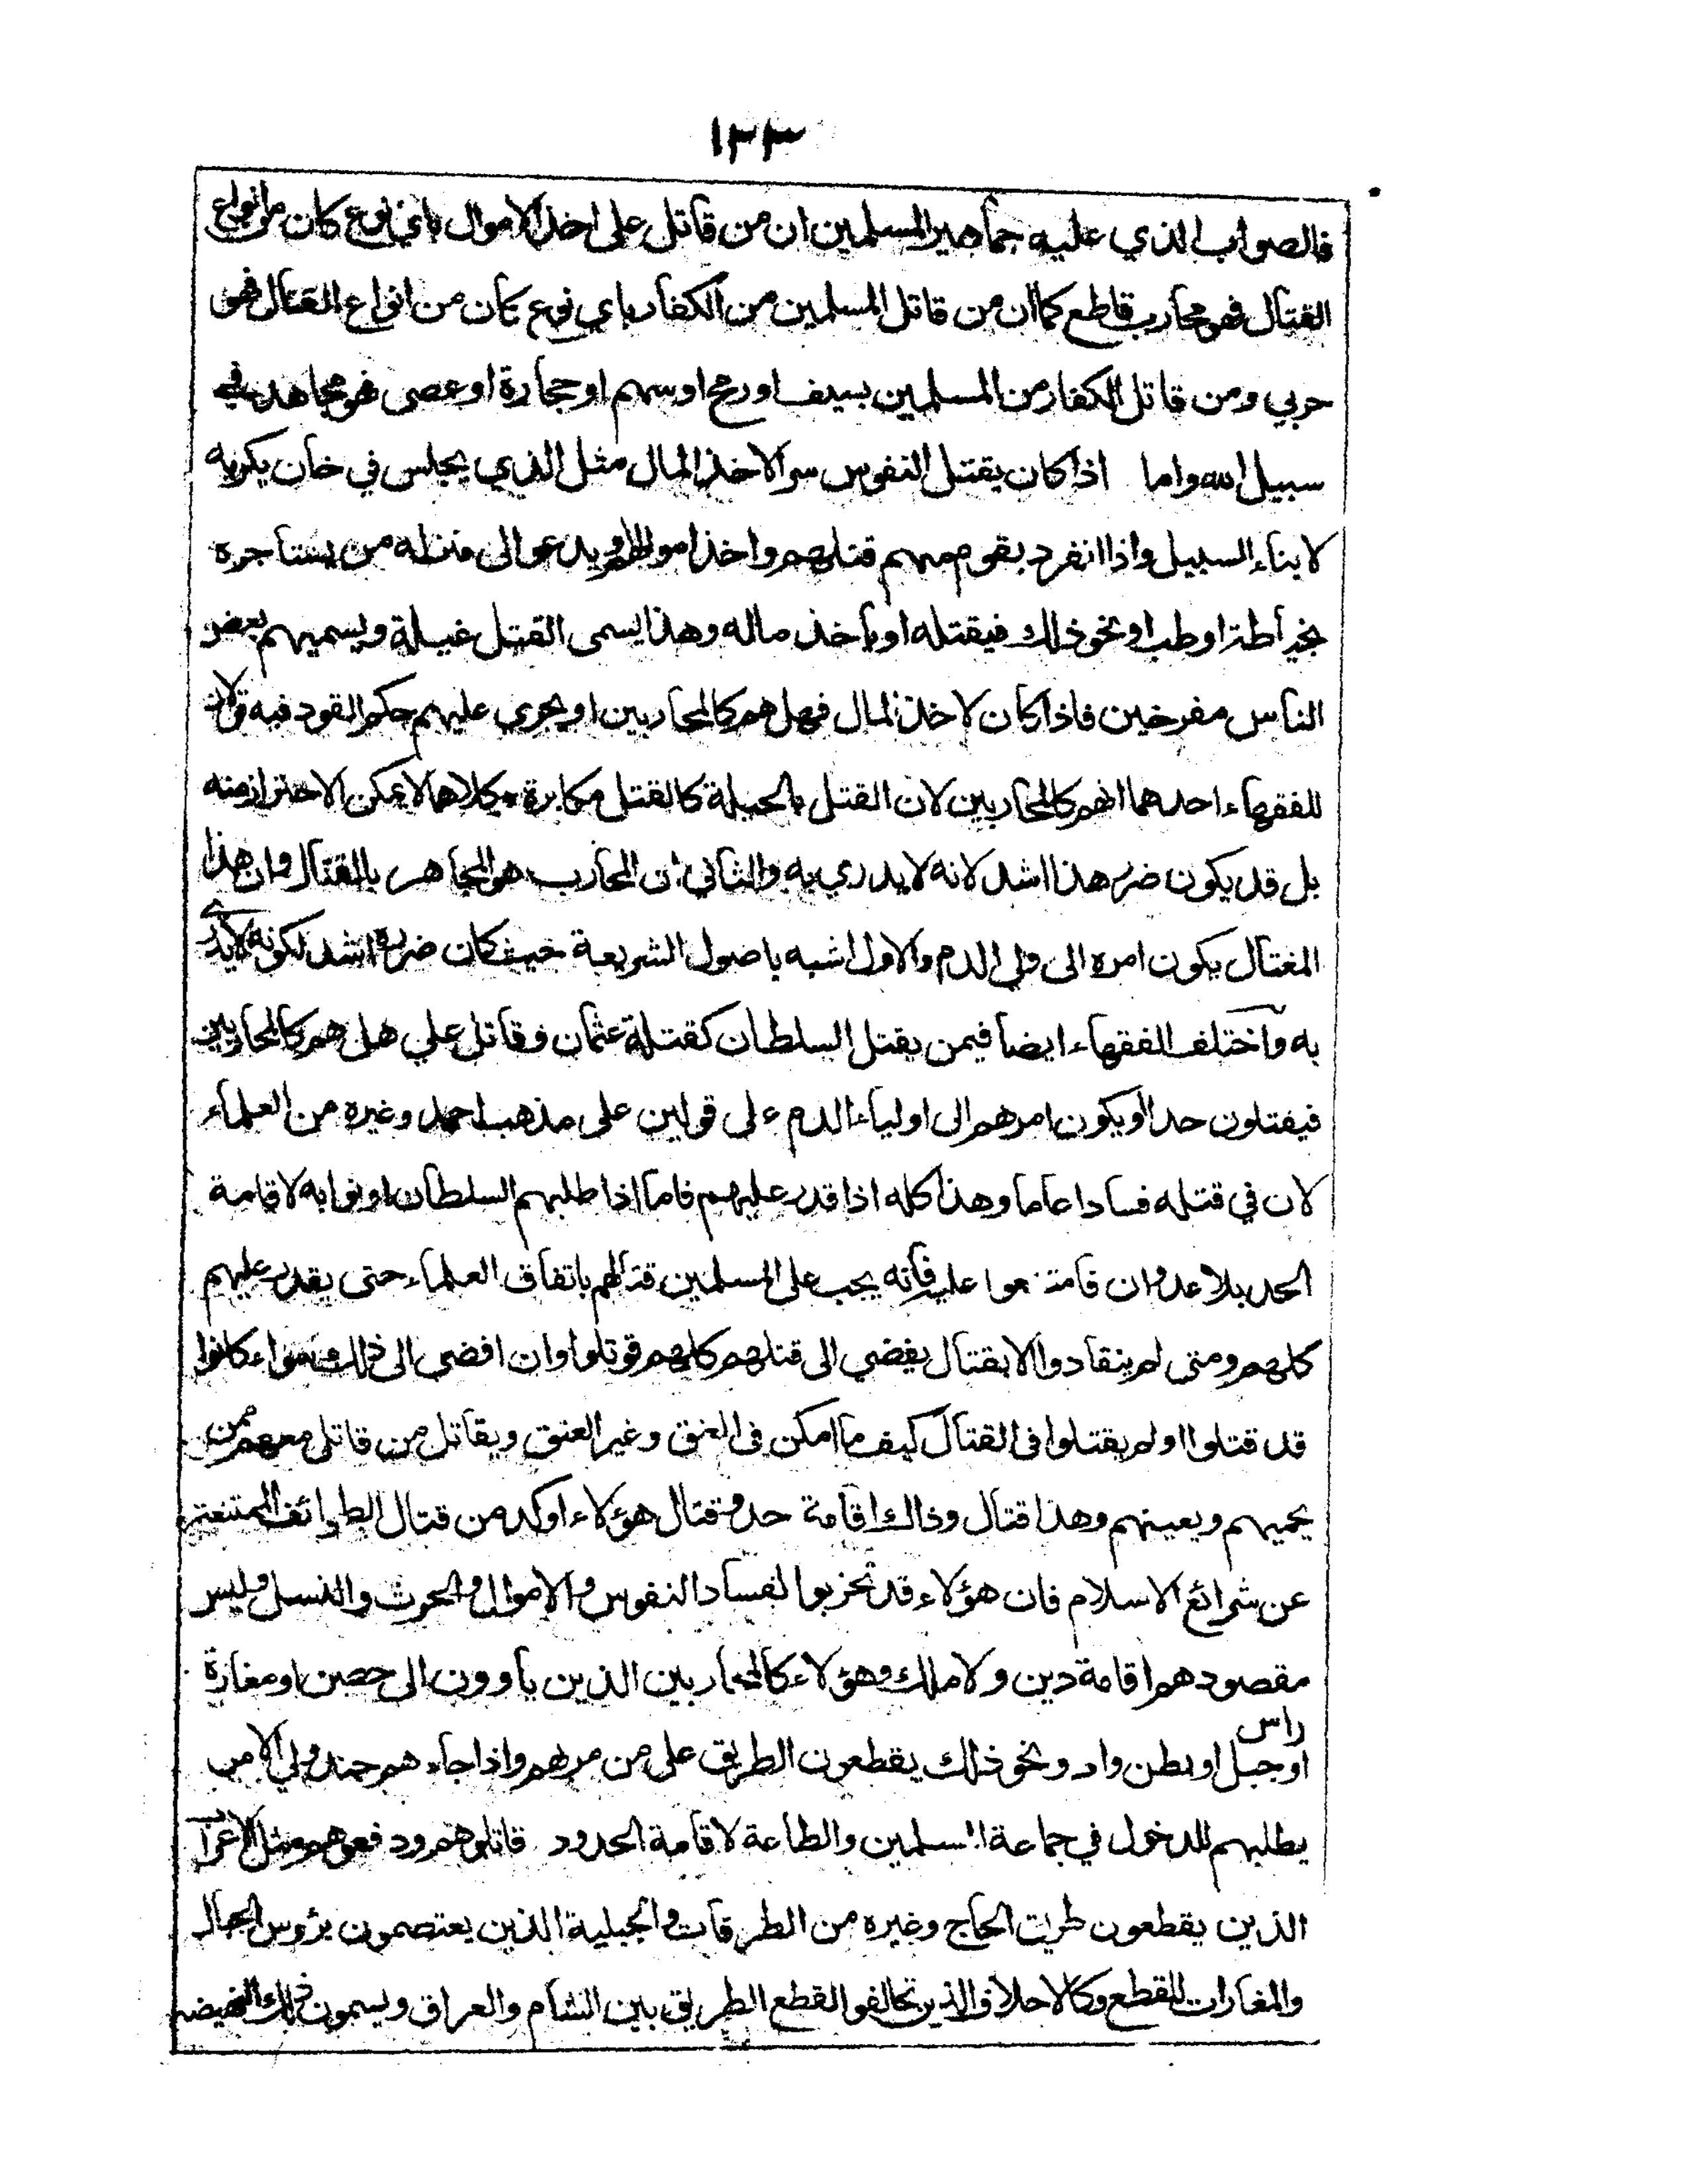 ١٣٣
فالصواب الذي عليه جماهير المسلمين ان من قاتل على اخذ الاموال باي نوع كان من انواع
القتال فهو محارب قاطع كما ان من قاتل المسلمين من الكفار باي نوع كان من انواع القتال فهو
حربي ومن قاتل الكفار من المسلمين بسيف او رمح او سهم او حجارة او عصى فهو مجاهد في
سبيل الله واما اذا كان يقتل النفوس سرا لاخذ المال مثل الذي يجلس في خان يكريه
لابناء السبيل واذا انفرد بقوم منهم قتلهم واخذ اموالهم او يدعوا الى منزله من يستاجره
بخياطة او طب او نحو ذلك فيقتله او ياخذ ماله وهذا يسمى القتل غيلة ويسميهم بعض
الناس مفرخين فاذا كان لاخذ المال فهل هم كالمحاربين او يجري عليهم حكم القود فيه قولان
للفقهاء احدهما انهم كالمحاربين لان القتل بالحيلة كالقتل مكابرة وكلاهما لا يمكن الاحتراز منه
بل قد يكون ضرر هذا اشد لانه لا يدري به والثاني ان المحارب هو المجاهر بالقتال وان هذا
المغتال يكون امره الى ولي الدم والاول اشبه باصول الشريعة حيث كان ضرره اشد لكونه لا يدرى
به واختلف الفقهاء ايضا فيمن يقتل السلطان كقتلة عثمان وقاتل علي هل هم كالمحاربين
فيقتلون حدا او يكون امرهم الى اولياء الدم على قولين على مذهب احمد وغيره من العلماء
لان في قتله فسادا عاما وهذا كله اذا قدر عليهم فاما اذا طلبهم السلطان او نوابه لاقامة
الحد بلا عدوان فامتنعوا عليه فانه يجب على المسلمين قتالهم باتفاق العلماء حتى يقدر عليهم
كلهم ومتى لم ينقادوا الا بقتال يفضي الى قتلهم كلهم قوتلوا وان افضى الى ذلك وسواء كانوا
قد قتلوا او لم يقتلوا في القتال كيف ما امكن في العنق وغير العنق ويقاتل من قاتل معهم ممن
يحميهم ويعينهم وهذا قتال وذاك اقامة حد وقتال هؤلاء اوكد من قتال الطوائف الممتنعة
عن شرائع الاسلام فان هؤلاء قد تحزبوا لفساد النفوس والاموال والحرث والنسل وليس
مقصودهم اقامة دين ولا ملك وهؤلاء كالمحاربين الذين ياوون الى حصن او مغارة
او راس جبل او بطن واد ونحو ذلك يقطعون الطريق على من مر بهم واذا جاء هم جند ولي الامر
يطلبهم للدخول في جماعة المسلمين والطاعة لاقامة الحدود قاتلوهم ودفعوهم مثل الاعراب
الذين يقطعون طريق الحاج وغيره من الطرقات والجبلية الذين يعتصمون برؤوس الجبال
والمغارات للقطع وكالاحلاف الذين تحالفوا لقطع الطريق بين الشام والعراق ويسمون ذلك النهيضه